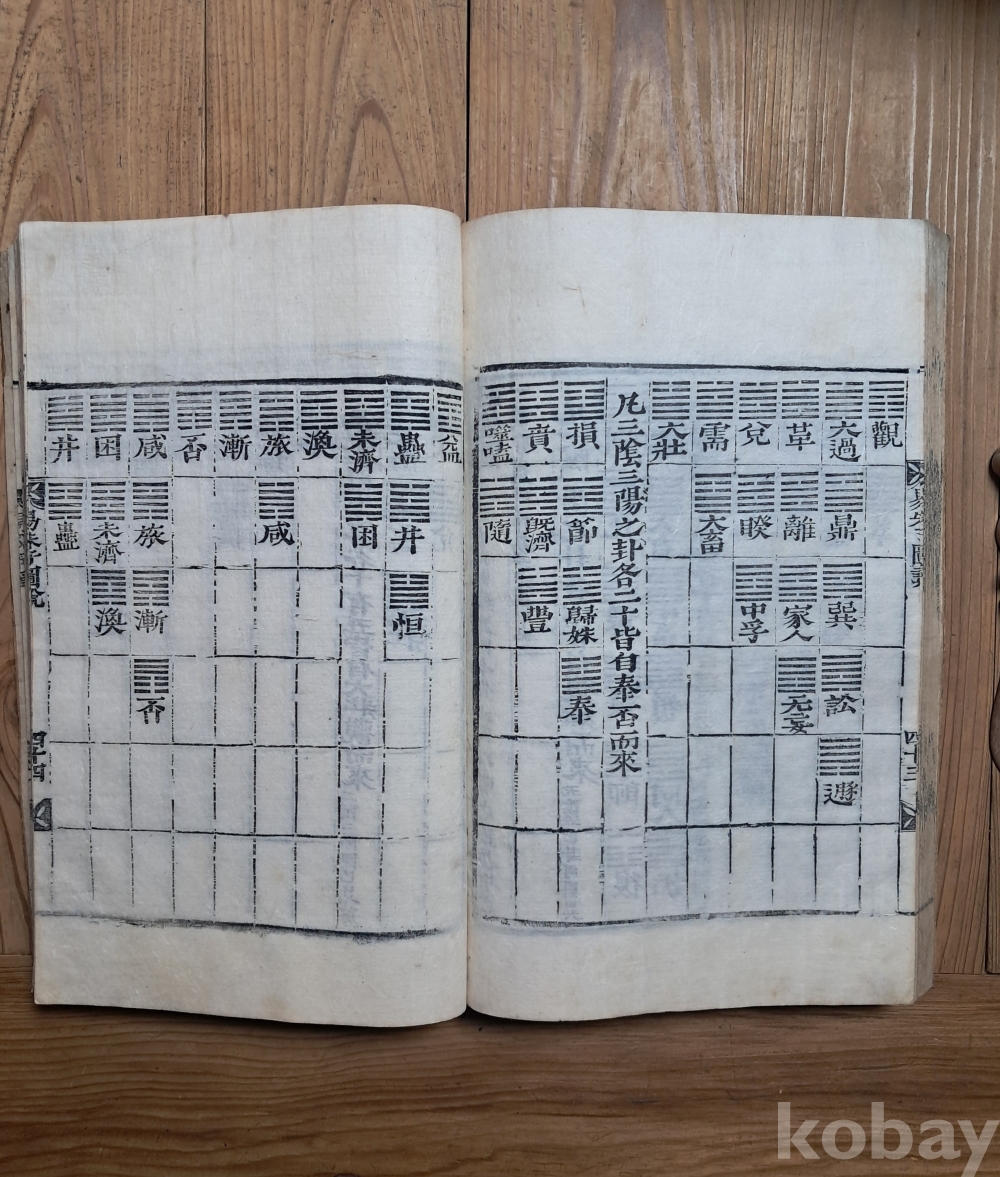 四十三
觀
大過 鼎 巽 訟 遯
革 離 家人 无妄
兌 睽 中孚
需 大畜
大壯
凡三陰三陽之卦各二十皆自泰否而來
損 節 歸妹 泰
賁 旣濟 豐
噬嗑 隨
益
蠱 井 恒
未濟 困
渙
旅 咸
漸
否
咸 旅 漸 否
困 未濟 渙
井 蠱
四十四
kobay